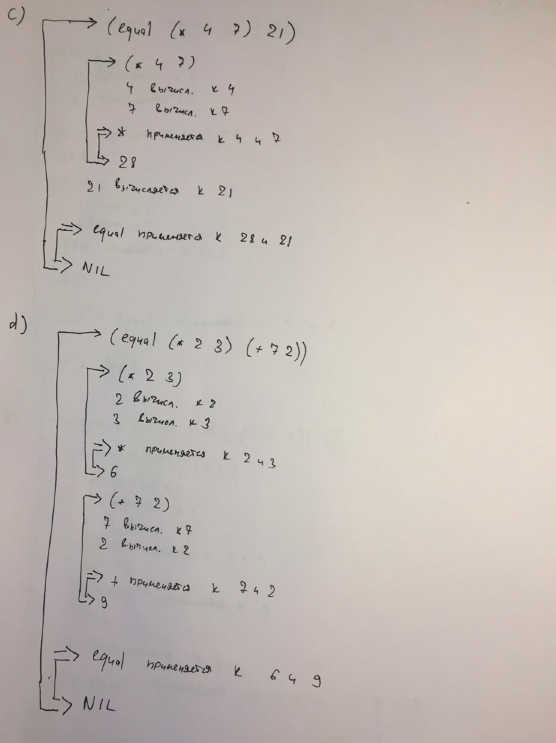 c)
(equal (* 4 7) 21)
(* 4 7)
4 вычисл. к 4
7 вычисл. к 7
* применяется к 4 и 7
28
21 вычисляется к 21
equal применяется к 28 и 21
NIL
d)
(equal (* 2 3) (+ 7 2))
(* 2 3)
2 вычисл. к 2
3 вычисл. к 3
* применяется к 2 и 3
6
(+ 7 2)
7 вычисл. к 7
2 вычисл. к 2
+ применяется к 7 и 2
9
equal применяется к 6 и 9
NIL